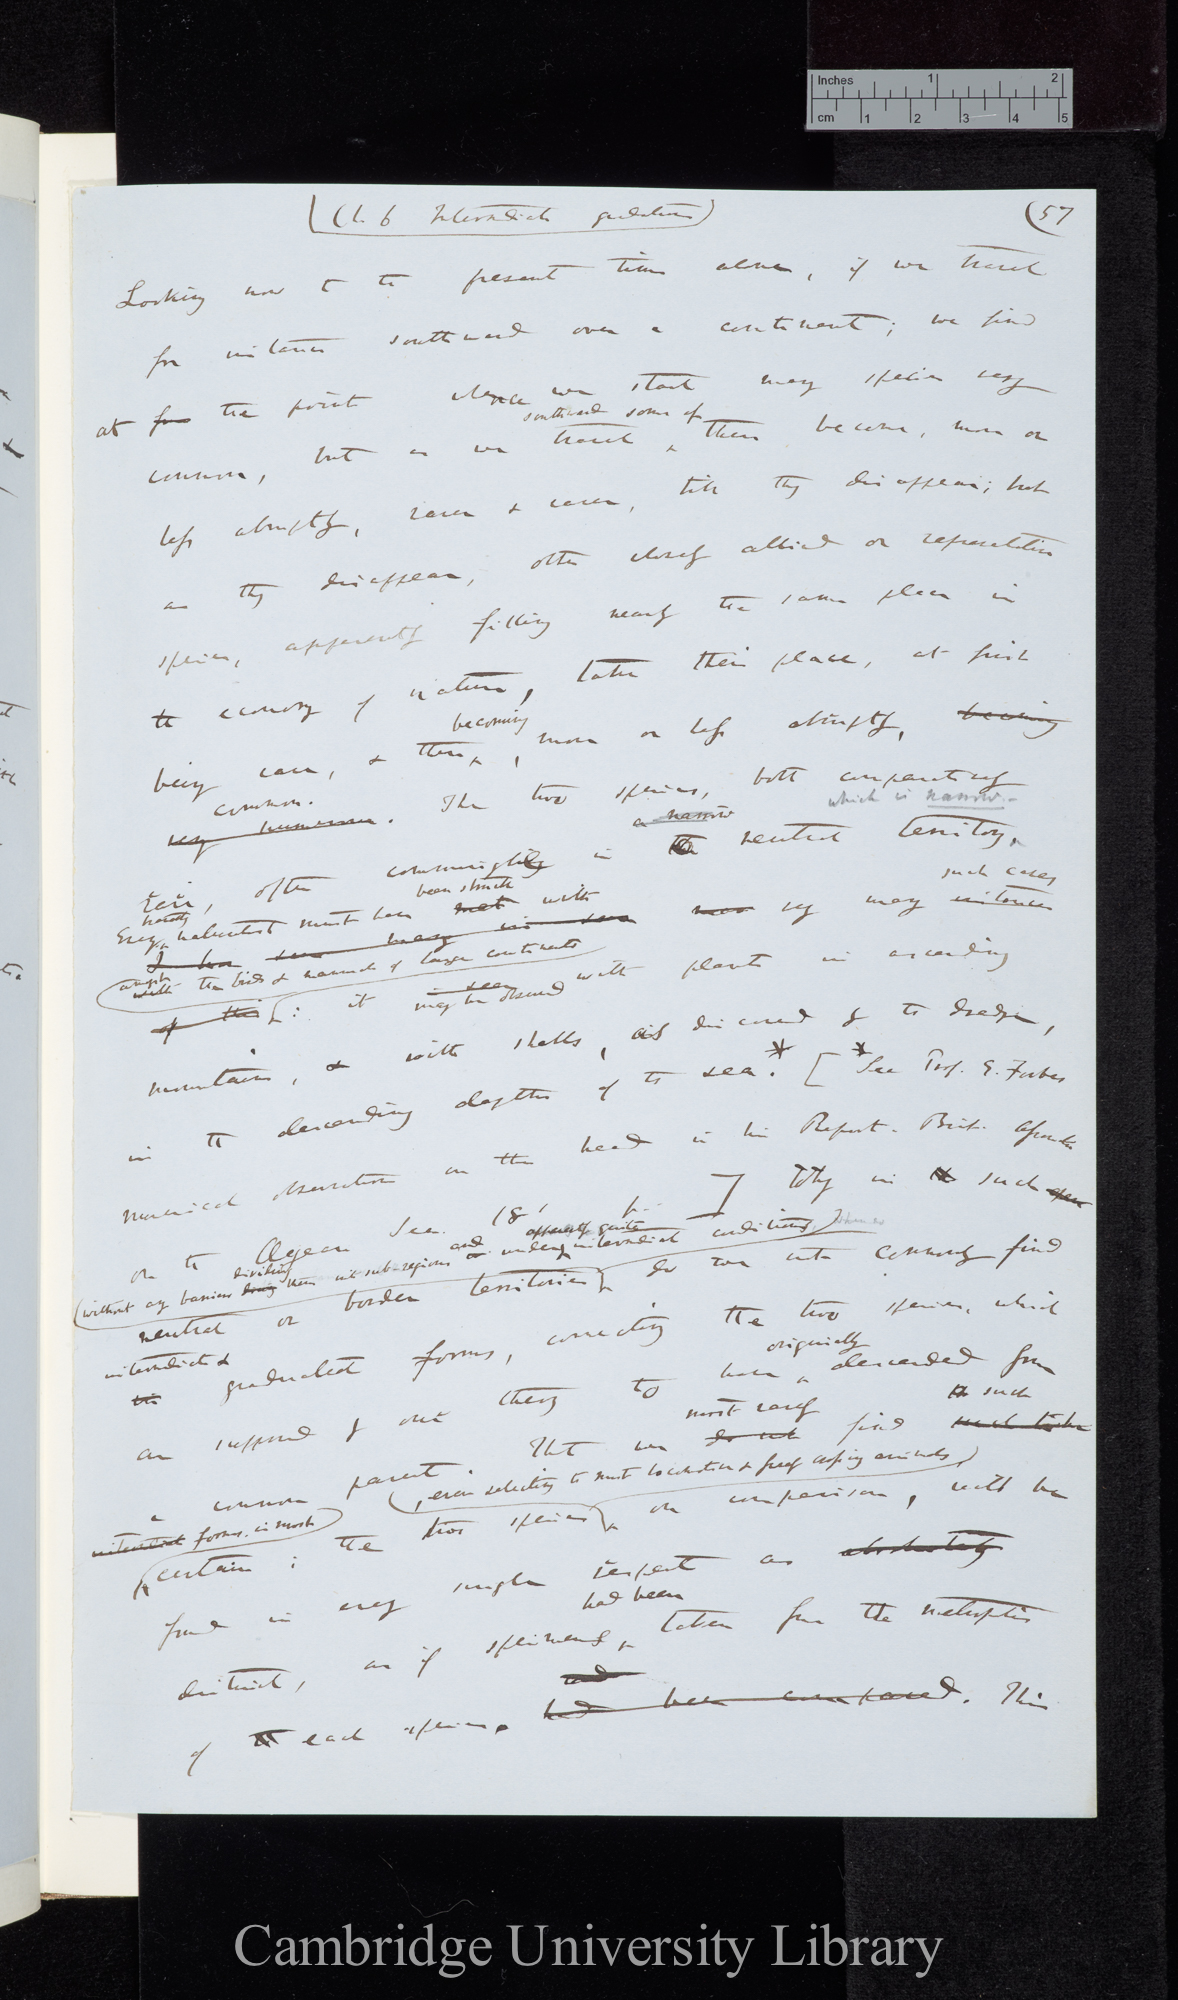 Inches 1 2
cm 1 2 3 4 5
(Ch. 6 Intermediate gradations)
(57
Looking now to the present time alone, if we travel
for instance southward over a continent; we find
at from the point whence we start many species very
southward some of
common, but as we travel ^ them become, more or
less abruptly, rarer & rarer, till they disappear; but
as they disappear, other closely allied or representative
species, apparently filling nearly the same place in
the economy of nature, take their place, at first
becoming
being rare, & then ^, more or less abruptly, becoming
common.
very numerous. The two species, both comparatively
which is narrow.
a narrow
rare, often commingling in the neutral territory.
been struck
such cases
hardly
Every ^ naturalist must have met with very many instances
amongst
with the birds & mammals of large continents
of this : it may be observed with plants in ascending
seen
mountains, & with shells, as discovered by the dredge,
in the descending depths of the sea.* [*See Prof. E. Forbes
numerical observations on this head in his Report. Brit. Assoc
on the Aegean Sea. 18 , p. ] Why in such
and apparently quite
dividing
(without any barriers dividing them into sub-regions or under intermediate conditions,)
neutral or border territories ^ do we not commonly find
intermediate &
the graduated forms, connecting the two species, which
originally
are supposed by our theory to have ^ descended from
such
most rarely
a common parent. That we do not find
(, even selecting the most locomotive & freely crossing animals,)
intermediate forms, in most
certain: the two species ^ on comparison, will be
found in every single respect as absolutely
had been
distinct, as if specimens ^ taken from the metropolis
of the each species. had been compared. This
Cambridge University Library